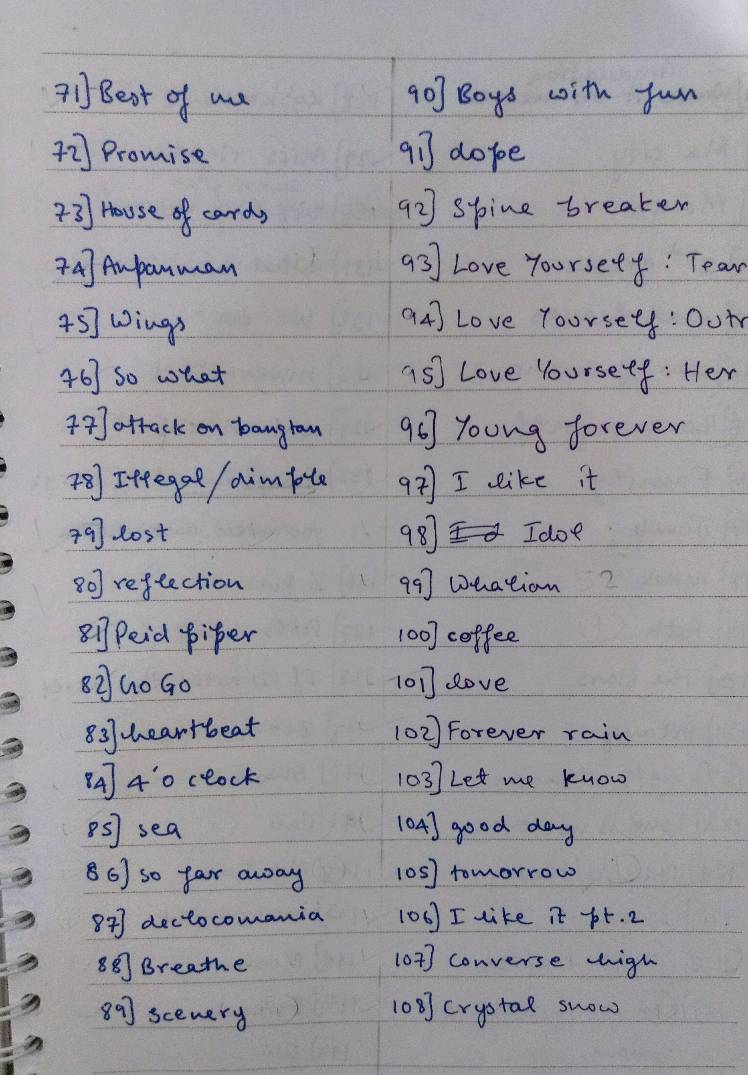 71] Best of me
72] Promise
73] House of cards
74] Anpanman
75] Wings
76] So what
77] attack on bangtan
78] Illegal/dimple
79] lost
80] reflection
81] Peid piper
82] Go Go
83] heartbeat
84] 4'o clock
85] sea
86] so far away
87] declocomania
88] Breathe
89] scenery
90] Boys with fun
91] dope
92] Spine breaker
93] Love Yourself : Tear
94] Love Yourself : Outr
95] Love Yourself : Her
96] Young forever
97] I like it
98] Idol
99] Whalian 2
100] coffee
101] love
102] Forever rain
103] Let me know
104] good day
105] tomorrow
106] I like it pt.2
107] converse high
108] Crystal snow